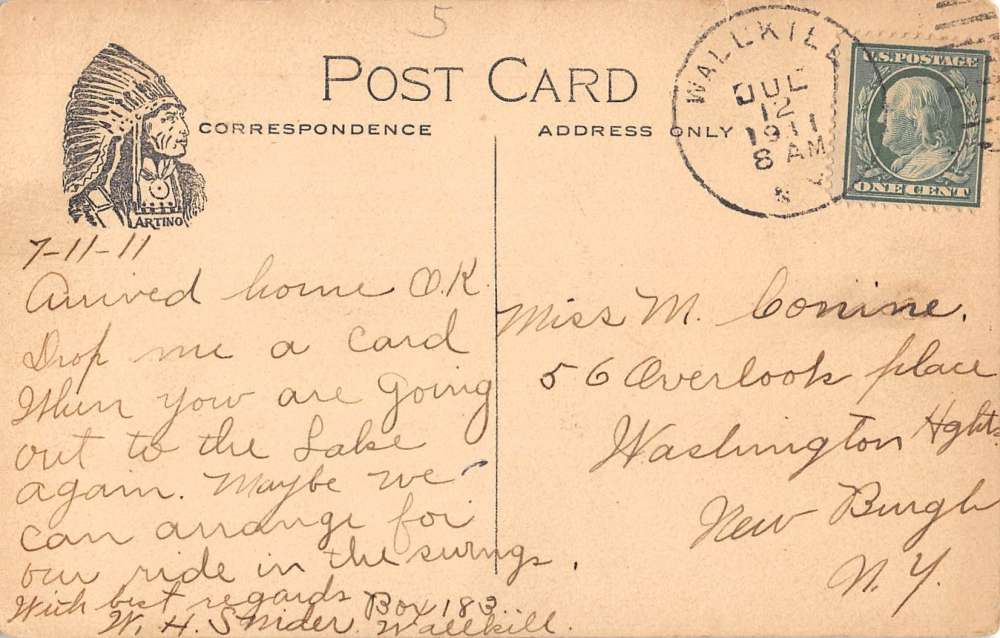 5
POST CARD
CORRESPONDENCE
ADDRESS ONLY
ARTINO
WALLKILL
JUL
12
1911
8 AM
U.S. POSTAGE
ONE CENT
7-11-11
Arrived home O.K.
Drop me a card
When you are going
out to the Lake
again. Maybe we
can arrange for
our ride in the swings.
With best regards
W. H. Snider. Box 183. Wallkill.
Miss M. Conine.
56 Overlook place
Washington Hghts
New Burgh
N.Y.